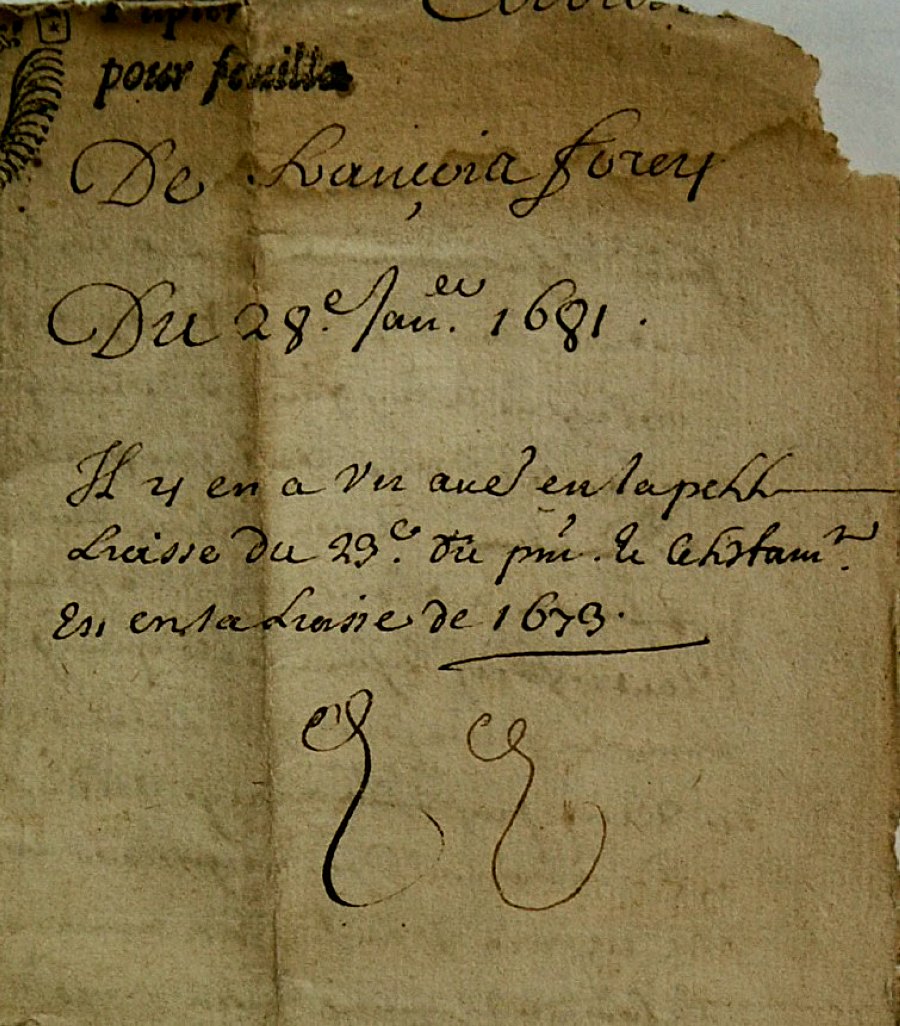 pour feuille
De françois forey
Du 28.e Jan.er 1681.
Il y en a vn en la petitte
Liaisse du 23.e du pnt. le testam.nt
Est en la Liaisse de 1673.